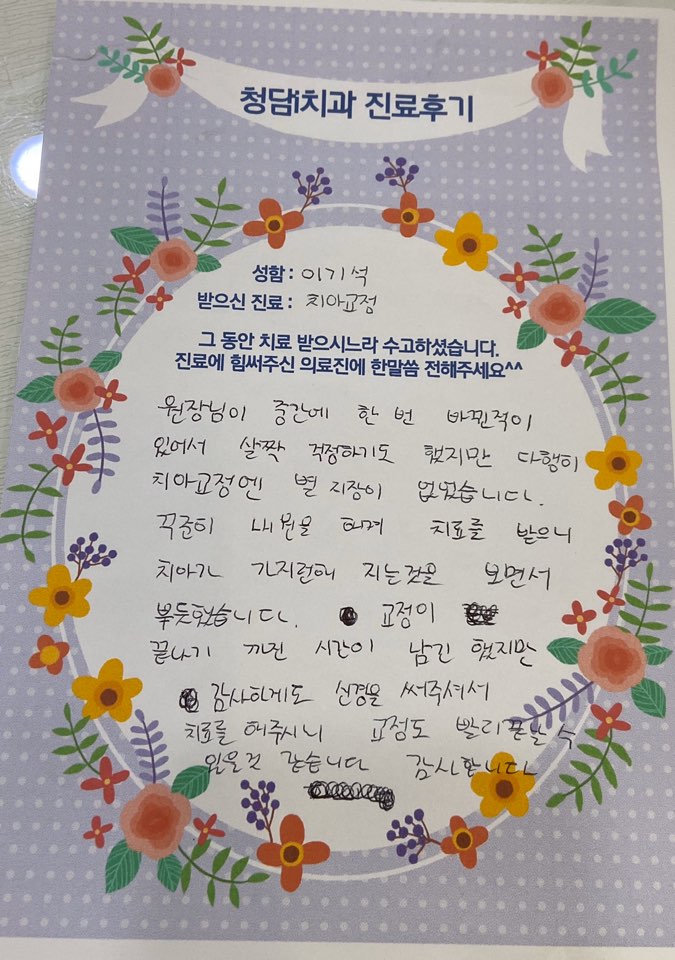 청담i치과 진료후기
성함 : 이기석
받으신 진료 : 치아교정
그 동안 치료 받으시느라 수고하셨습니다.
진료에 힘써주신 의료진에 한말씀 전해주세요^^
원장님이 중간에 한 번 바뀐적이
있어서 살짝 걱정하기도 했지만 다행히
치아교정엔 별 지장이 없었습니다.
꾹준히 내원을 하며 치료를 받으니
치아가 가지런해 지는것을 보면서
뿌듯했습니다. 교정이
끝나기 까진 시간이 남긴 했지만
감사하게도 신경을 써주셔서
치료를 해주시니 교정도 빨리 끝날 수
있을것 같습니다 감사합니다